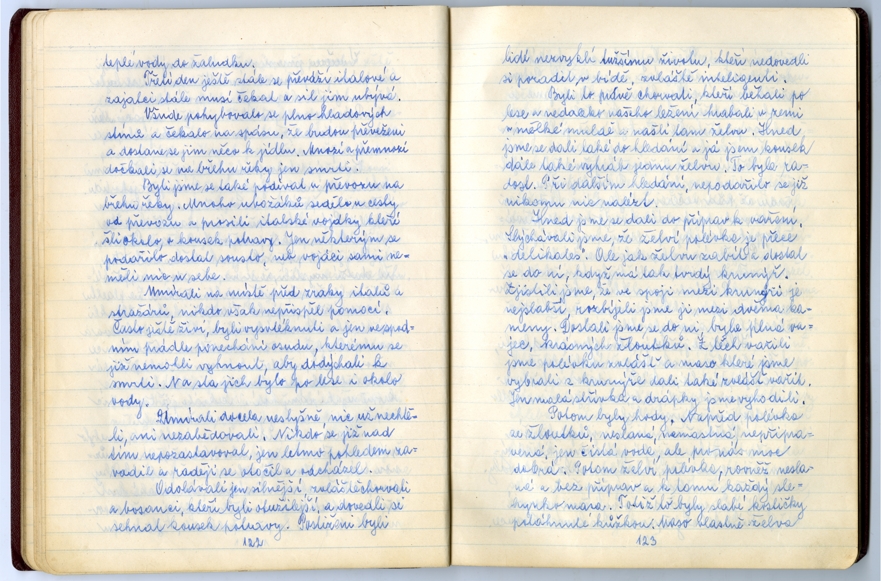 teplé vody do žaludku.
Třetí den ještě stále se převáží italové a
zajatci stále musí čekat a sil jim ubývá.
Všude pohybovalo se plno hladových
stínů a čekalo na spásu, že budou převeženi
a dostane se jim něco k jídlu. Mnozí a přemnozí
dočkali se na břehu řeky jen smrti.
Byli jsme se také podívat u převozu na
břehu řeky. Mnoho ubožáků sedělo u cesty
od převozu a prosili italské vojáky kteří
šli okolo, o kousek potravy. Jen některým se
podařilo dostat sousto, neb vojáci sami ne=
měli nic u sebe.
Umírali na místě před zraky italů a
strážárů, nikdo však nepřispěl pomocí.
Často ještě živí, byli vysvléknuti a jen v spod=
ním prádle ponecháni osudu, kterému se
již nemohli vyhnout, aby dodýchali k
smrti. Na sta jich bylo po lese i okolo
vody.
Umírali docela neslyšně, nic už nechtě=
li, ani nezabědovali. Nikdo se již nad
tím nepozastavoval, jen letmo pohledem za=
vadil a raději se otočil a odcházel.
Odolávali jen silnější, zvláště chorvati
a bosanci, kteří byli otužilejší, a dovedli si
sehnat kousek potravy. Postiženi byli
122
lidé nezvyklí tužšímu životu, kteří nedovedli
si poradit v bídě, zvláště inteligenti.
Byli to právě chorvati, kteří běhali po
lese a nedaleko našeho ležení hrabali v zemi
v mělké muldě a našli tam želvu. Hned
jsme se dali také do hledání a já jsem kousek
dále také vyhrab jednu želvu. To byla ra=
dost. Při dalším hledání, nepodařilo se již
nikomu nic nalézt.
Hned jsme se dali do příprav k vaření.
Slýchávali jsme, že želví polévka je přece
„delikates“. Ale jak želvu zabít a dostat
se do ní, když má tak tvrdý krunýř.
Zjistili jsme, že ve spoji mezi krunýři je
nejslabší, rozbíjeli jsme ji mezi dvěma ka=
meny. Dostali jsme se do ní, byla plná va=
jec, krásných žloutků. Z těch vařili
jsme polévku zvlášť a maso které jsme
vybrali z krunýře dali také zvlášť vařit.
Jen malá střívka a drápky jsme vyhodili.
Potom byly hody. Napřed polévka
ze žloutků, neslaná, nemastná, nepřipra=
vená, jen čistá voda, ale pro nás moc
dobrá. Potom želví polévka, rovněž nesla=
ná a bez příprav a k tomu každý ře=
masa. Totiž to byly slabé kostičky
potáhnuté kůžkou. Maso vlastně želva
123